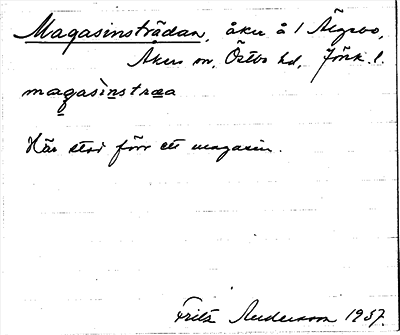 Magasinsträdan, åker å 1 Älgsbo,
Åkers sn, Östbo hd, Jönk. l.
magasinstræa
Här stod förr ett magasin.
Fritz Andersson 1937.